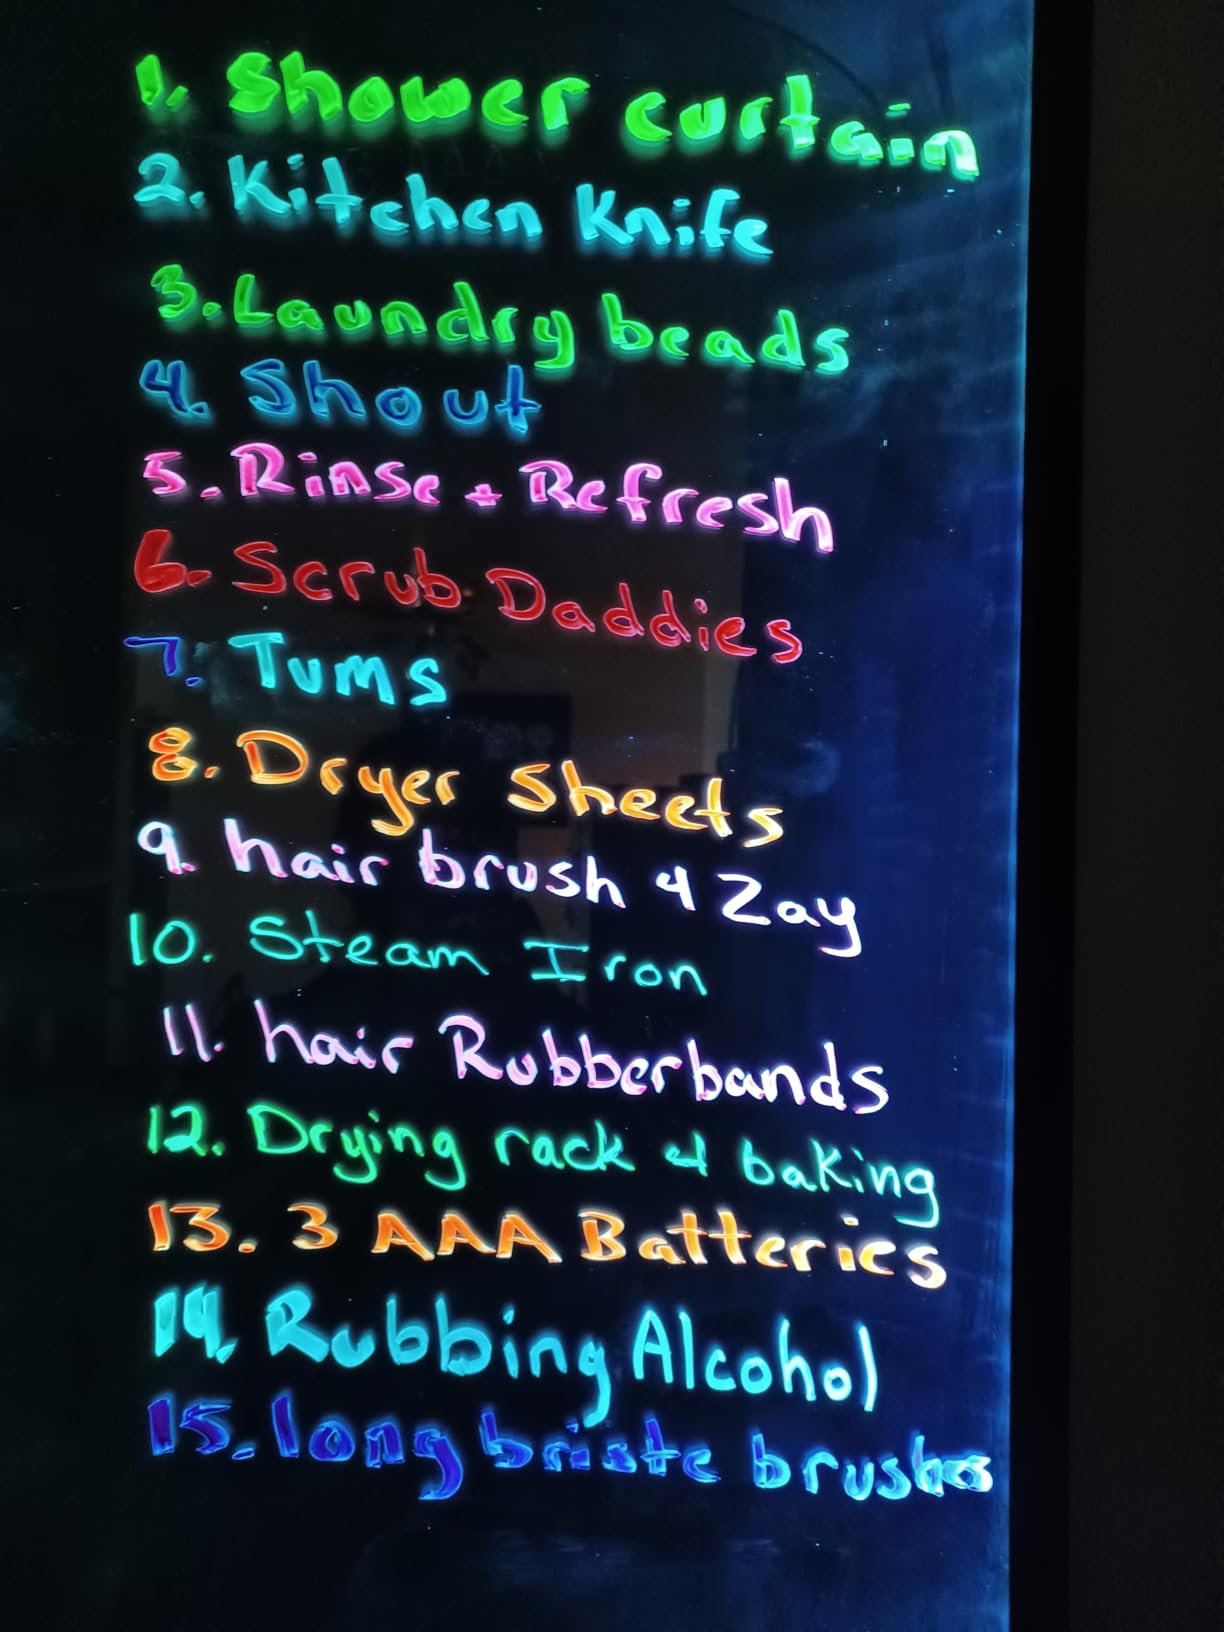 1. Shower curtain
2. Kitchen Knife
3. Laundry beads
4. Shout
5. Rinse + Refresh
6. Scrub Daddies
7. Tums
8. Dryer Sheets
9. hair brush 4 Zay
10. Steam Iron
11. hair Rubberbands
12. Drying rack 4 baking
13. 3 AAA Batteries
14. Rubbing Alcohol
15. long briste brushes